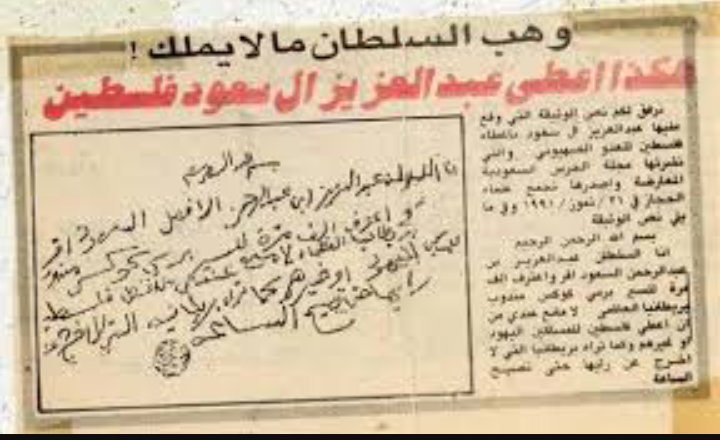 وهب السلطان مالايملك !
هكذا اعطى عبدالعزيز آل سعود فلسطين
نرفق لكم نص الوثيقة التي وقع
عليها عبدالعزيز آل سعود باعطاء
فلسطين للعدو الصهيوني والتي
نشرتها مجلة الحرس السعودية
المعارضة واصدرها تجمع علماء
الحجاز في ٣١ / تموز / ١٩٩١ وفي ما
يلي نص الوثيقة
بسم الله الرحمن الرحيم
انا السلطان عبدالعزيز بن
عبدالرحمن السعود اقر واعترف الف
مرة للسير برسي كوكس مندوب
بريطانيا العظمى لا مانع عندي من
ان اعطي فلسطين للمساكين اليهود
او غيرهم وكما تراه بريطانيا التي لا
اخرج عن رايها حتى تصيح
الساعة
انا السلطان عبدالعزيز ابن عبدالرحمن الفيصل السعود اقر
و اعترف الف مرة للسير برسي كوكس مندوب
بريطانيا العظمى لا مانع عندي فلسطين
او غيرهم كما تراه بريطانيا التي لا اخرج عن
رايها حتى تصيح الساعه